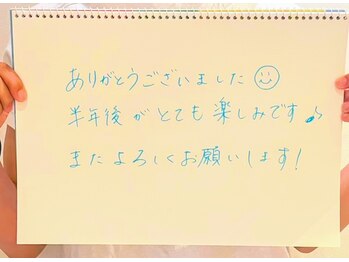 ありがとうございました☺
半年後がとても楽しみです♪
またよろしくお願いします!